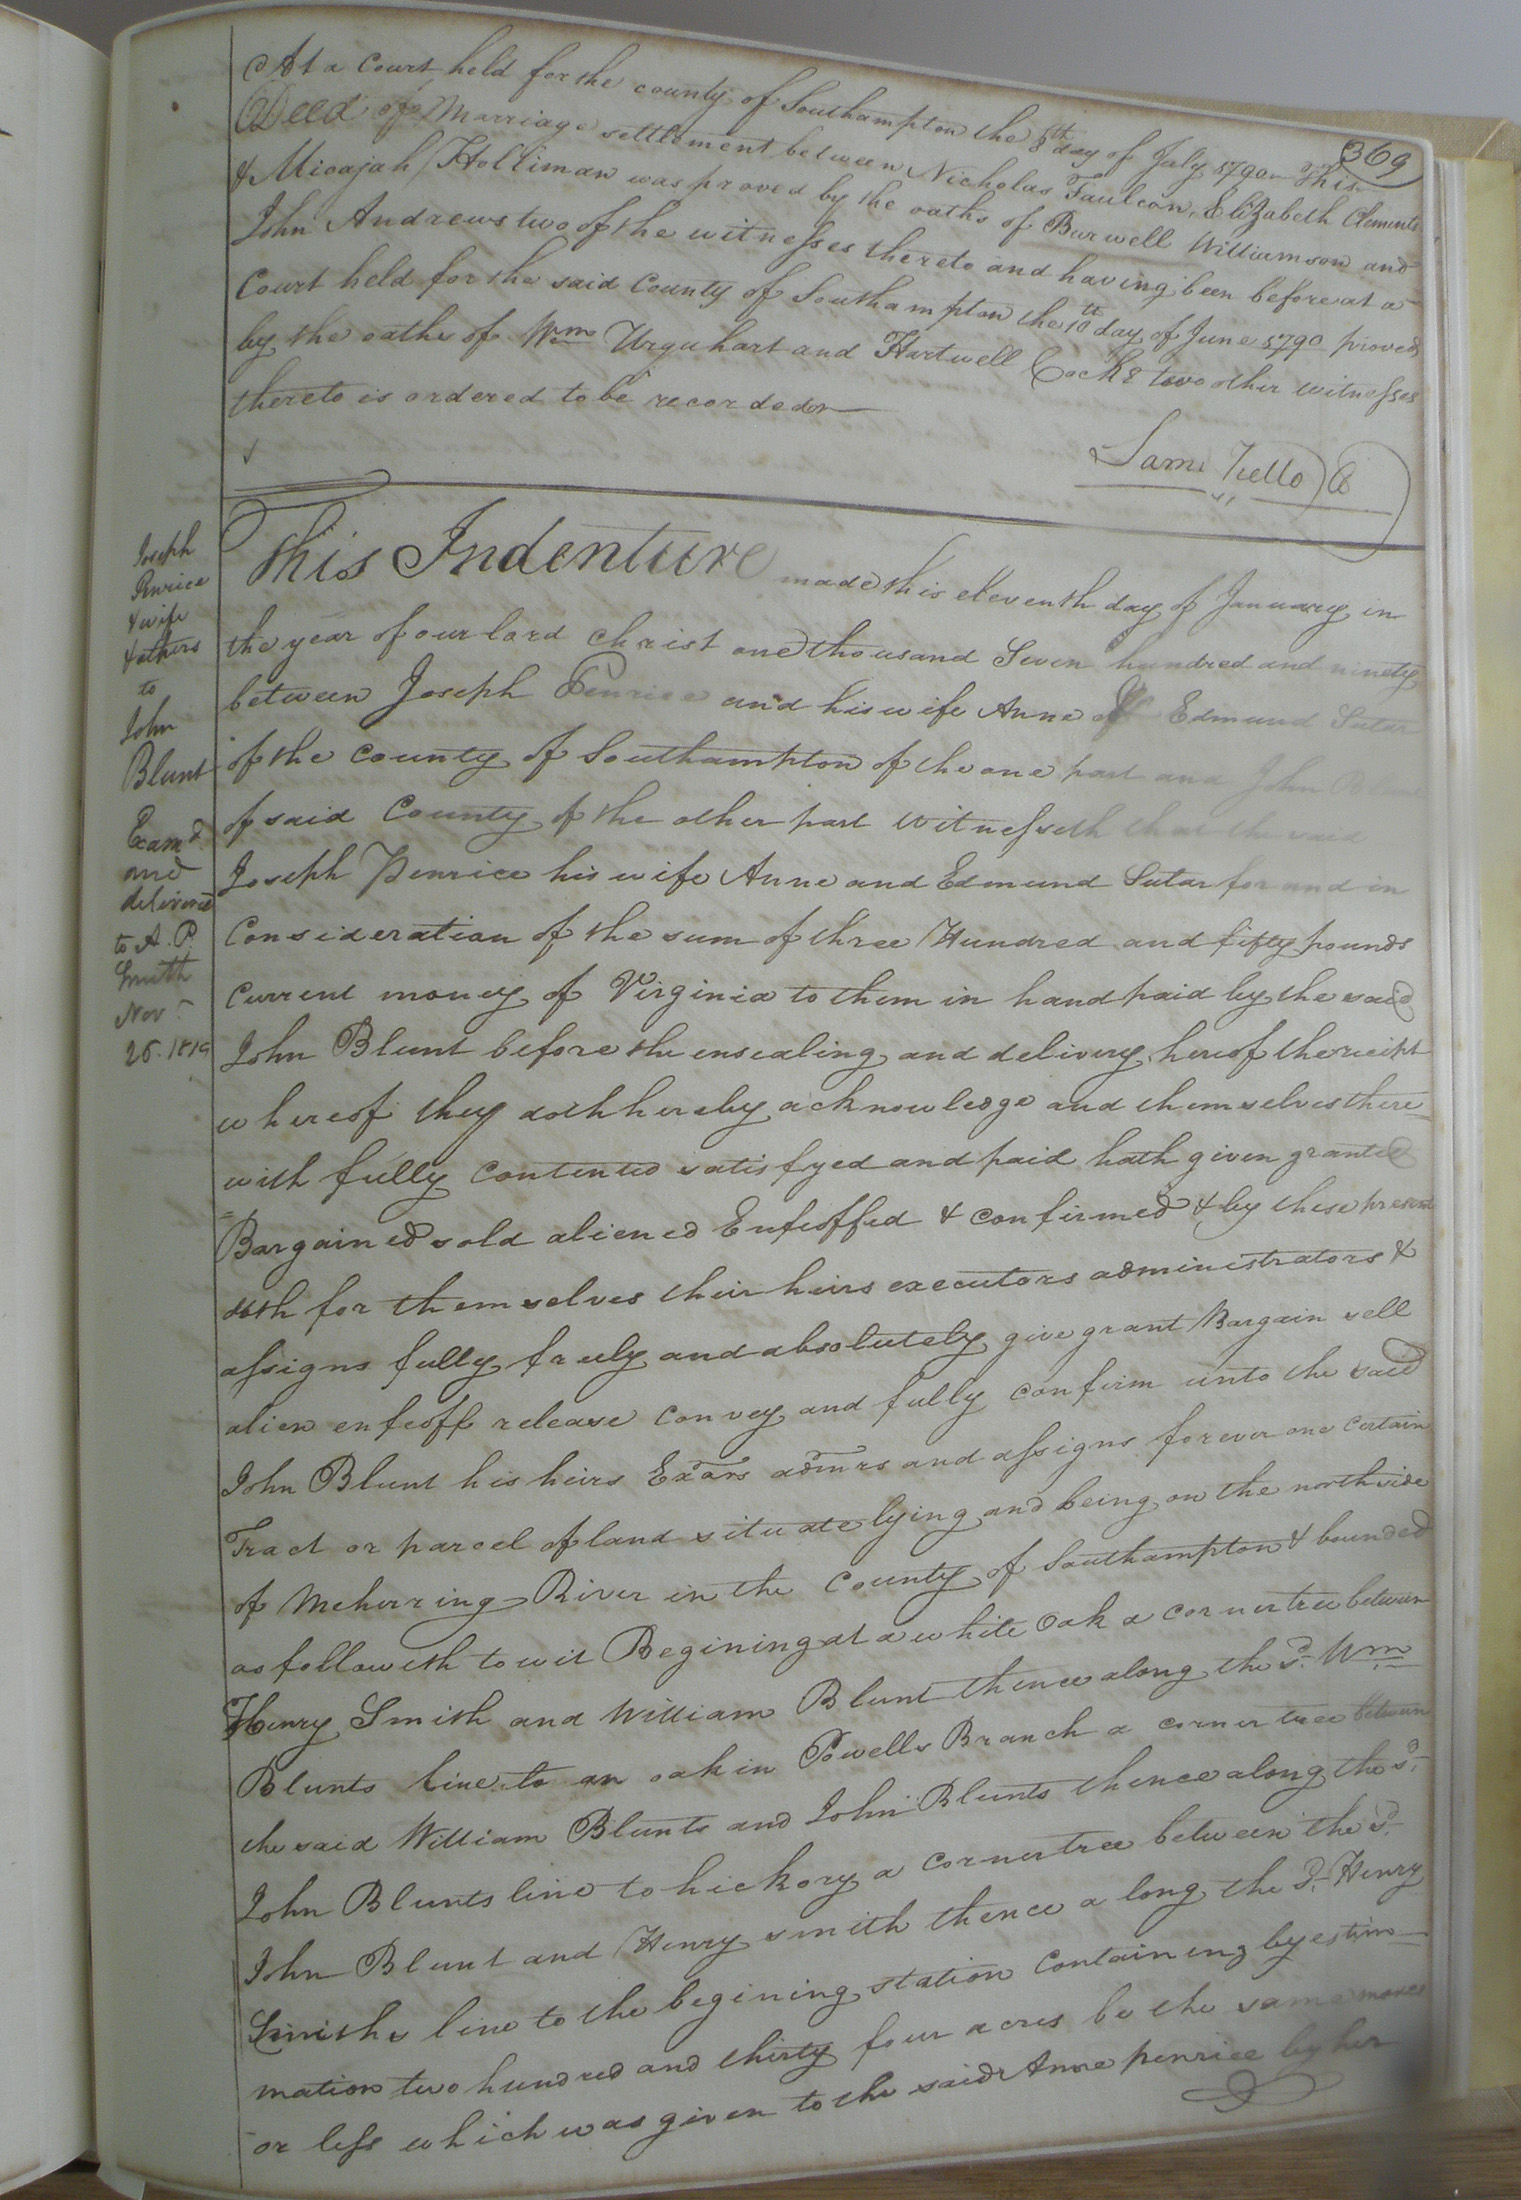 369
At a Court held for the county of Southampton the 8th day of July 1790 This
Deed of Marriage settlement between Nicholas Faulcon, Elizabeth Clements
& Micajah Holliman was proved by the oaths of Burwell Williamson and
John Andrews two of the witnesses thereto and having been before at a
Court held for the said County of Southampton the 10th day of June 1790 proved
by the oaths of Wm Urquhart and Hartwell Cocke two other witnesses
thereto is ordered to be recorded
Joseph
Penrice
& wife
& others
to
John
Blunt
Examd
and
delivered
to A. P.
Smith
Novr
26. 1819
This Indenture made this eleventh day of January in
the year of our lord Christ one thousand Seven hundred and ninety
between Joseph Penrice and his wife Anne & Edmund Sutar
of the County of Southampton of the one part and John Blunt
of said County of the other part witnesseth that the said
Joseph Penrice his wife Anne and Edmund Sutar for and in
Consideration of the sum of three Hundred and fifty pounds
Current money of Virginia to them in hand paid by the said
John Blunt before the ensealing and delivery hereof the reciept
whereof they doth hereby acknowledge and themselves there
with fully contented satisfyed and paid hath given granted
Bargained sold aliened Enfeoffed & confirmed & by these presents
doth for themselves their heirs executors administrators &
assigns fully freely and absolutely give grant Bargain sell
alien enfeoff release convey and fully confirm unto the said
John Blunt his heirs Exors admrs and assigns forever one certain
Tract or parcel of land situate lying and being on the north side
of Meherring River in the County of Southampton & bounded
as followeth to wit Begining at a white Oak a corner tree between
Henry Smith and William Blunt thence along the sd Wm
Blunts line to an oak in Powells Branch a corner tree between
the said William Blunts and John Blunts thence along the sd
John Blunts line to hickory a corner tree between the sd
John Blunt and Henry Smith thence along the sd Henry
Smiths line to the begining station Containing by estim
mation two hundred and thirty four acres be the same more
or less which was given to the said Anne penrice by her